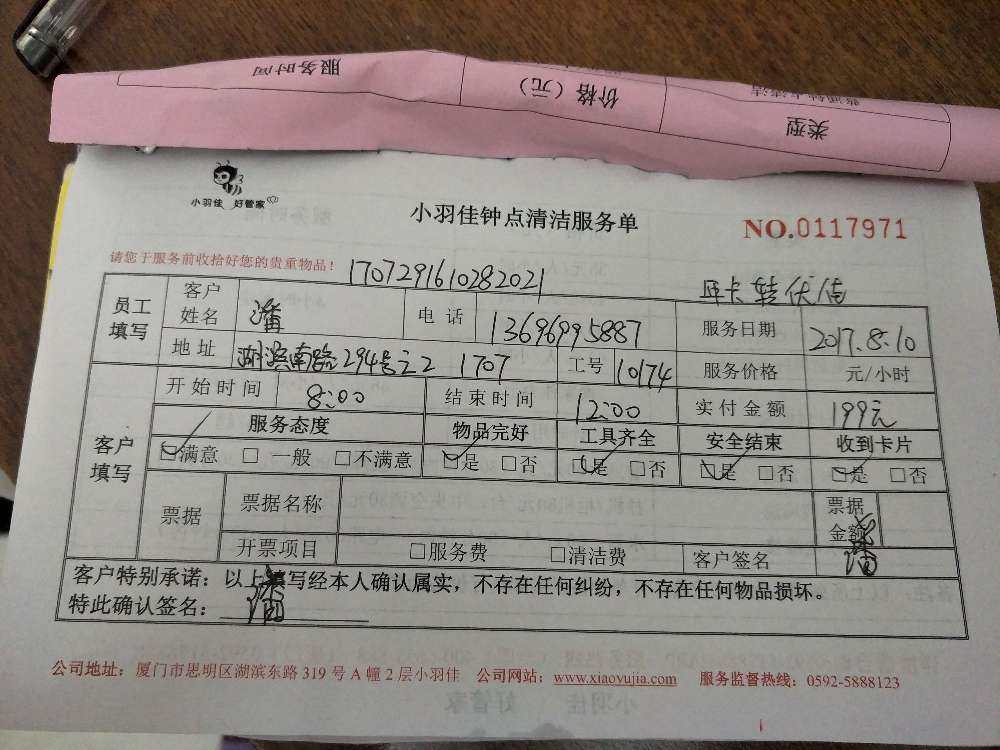 服务时间
价格（元）
类型
小羽佳 好管家
小羽佳钟点清洁服务单
NO.0117971
请您于服务前收拾好您的贵重物品！
1707291610282021
员工填写 客户姓名 潘 电话 13696995887 服务日期 2017.8.10
地址 湖滨南路294号之2 1707 工号 10174 服务价格 元/小时
客户填写 开始时间 8:00 结束时间 12:00 实付金额 199元
服务态度 物品完好 工具齐全 安全结束 收到卡片
☑满意 □一般 □不满意 ☑是 □否 ☑是 □否 ☑是 □否 ☑是 □否
票据 票据名称 票据金额
开票项目 □服务费 □清洁费 客户签名 潘
客户特别承诺：以上填写经本人确认属实，不存在任何纠纷，不存在任何物品损坏。
特此确认签名： 潘
公司地址：厦门市思明区湖滨东路 319 号 A 幢 2 层小羽佳 公司网站：www.xiaoyujia.com 服务监督热线：0592-5888123